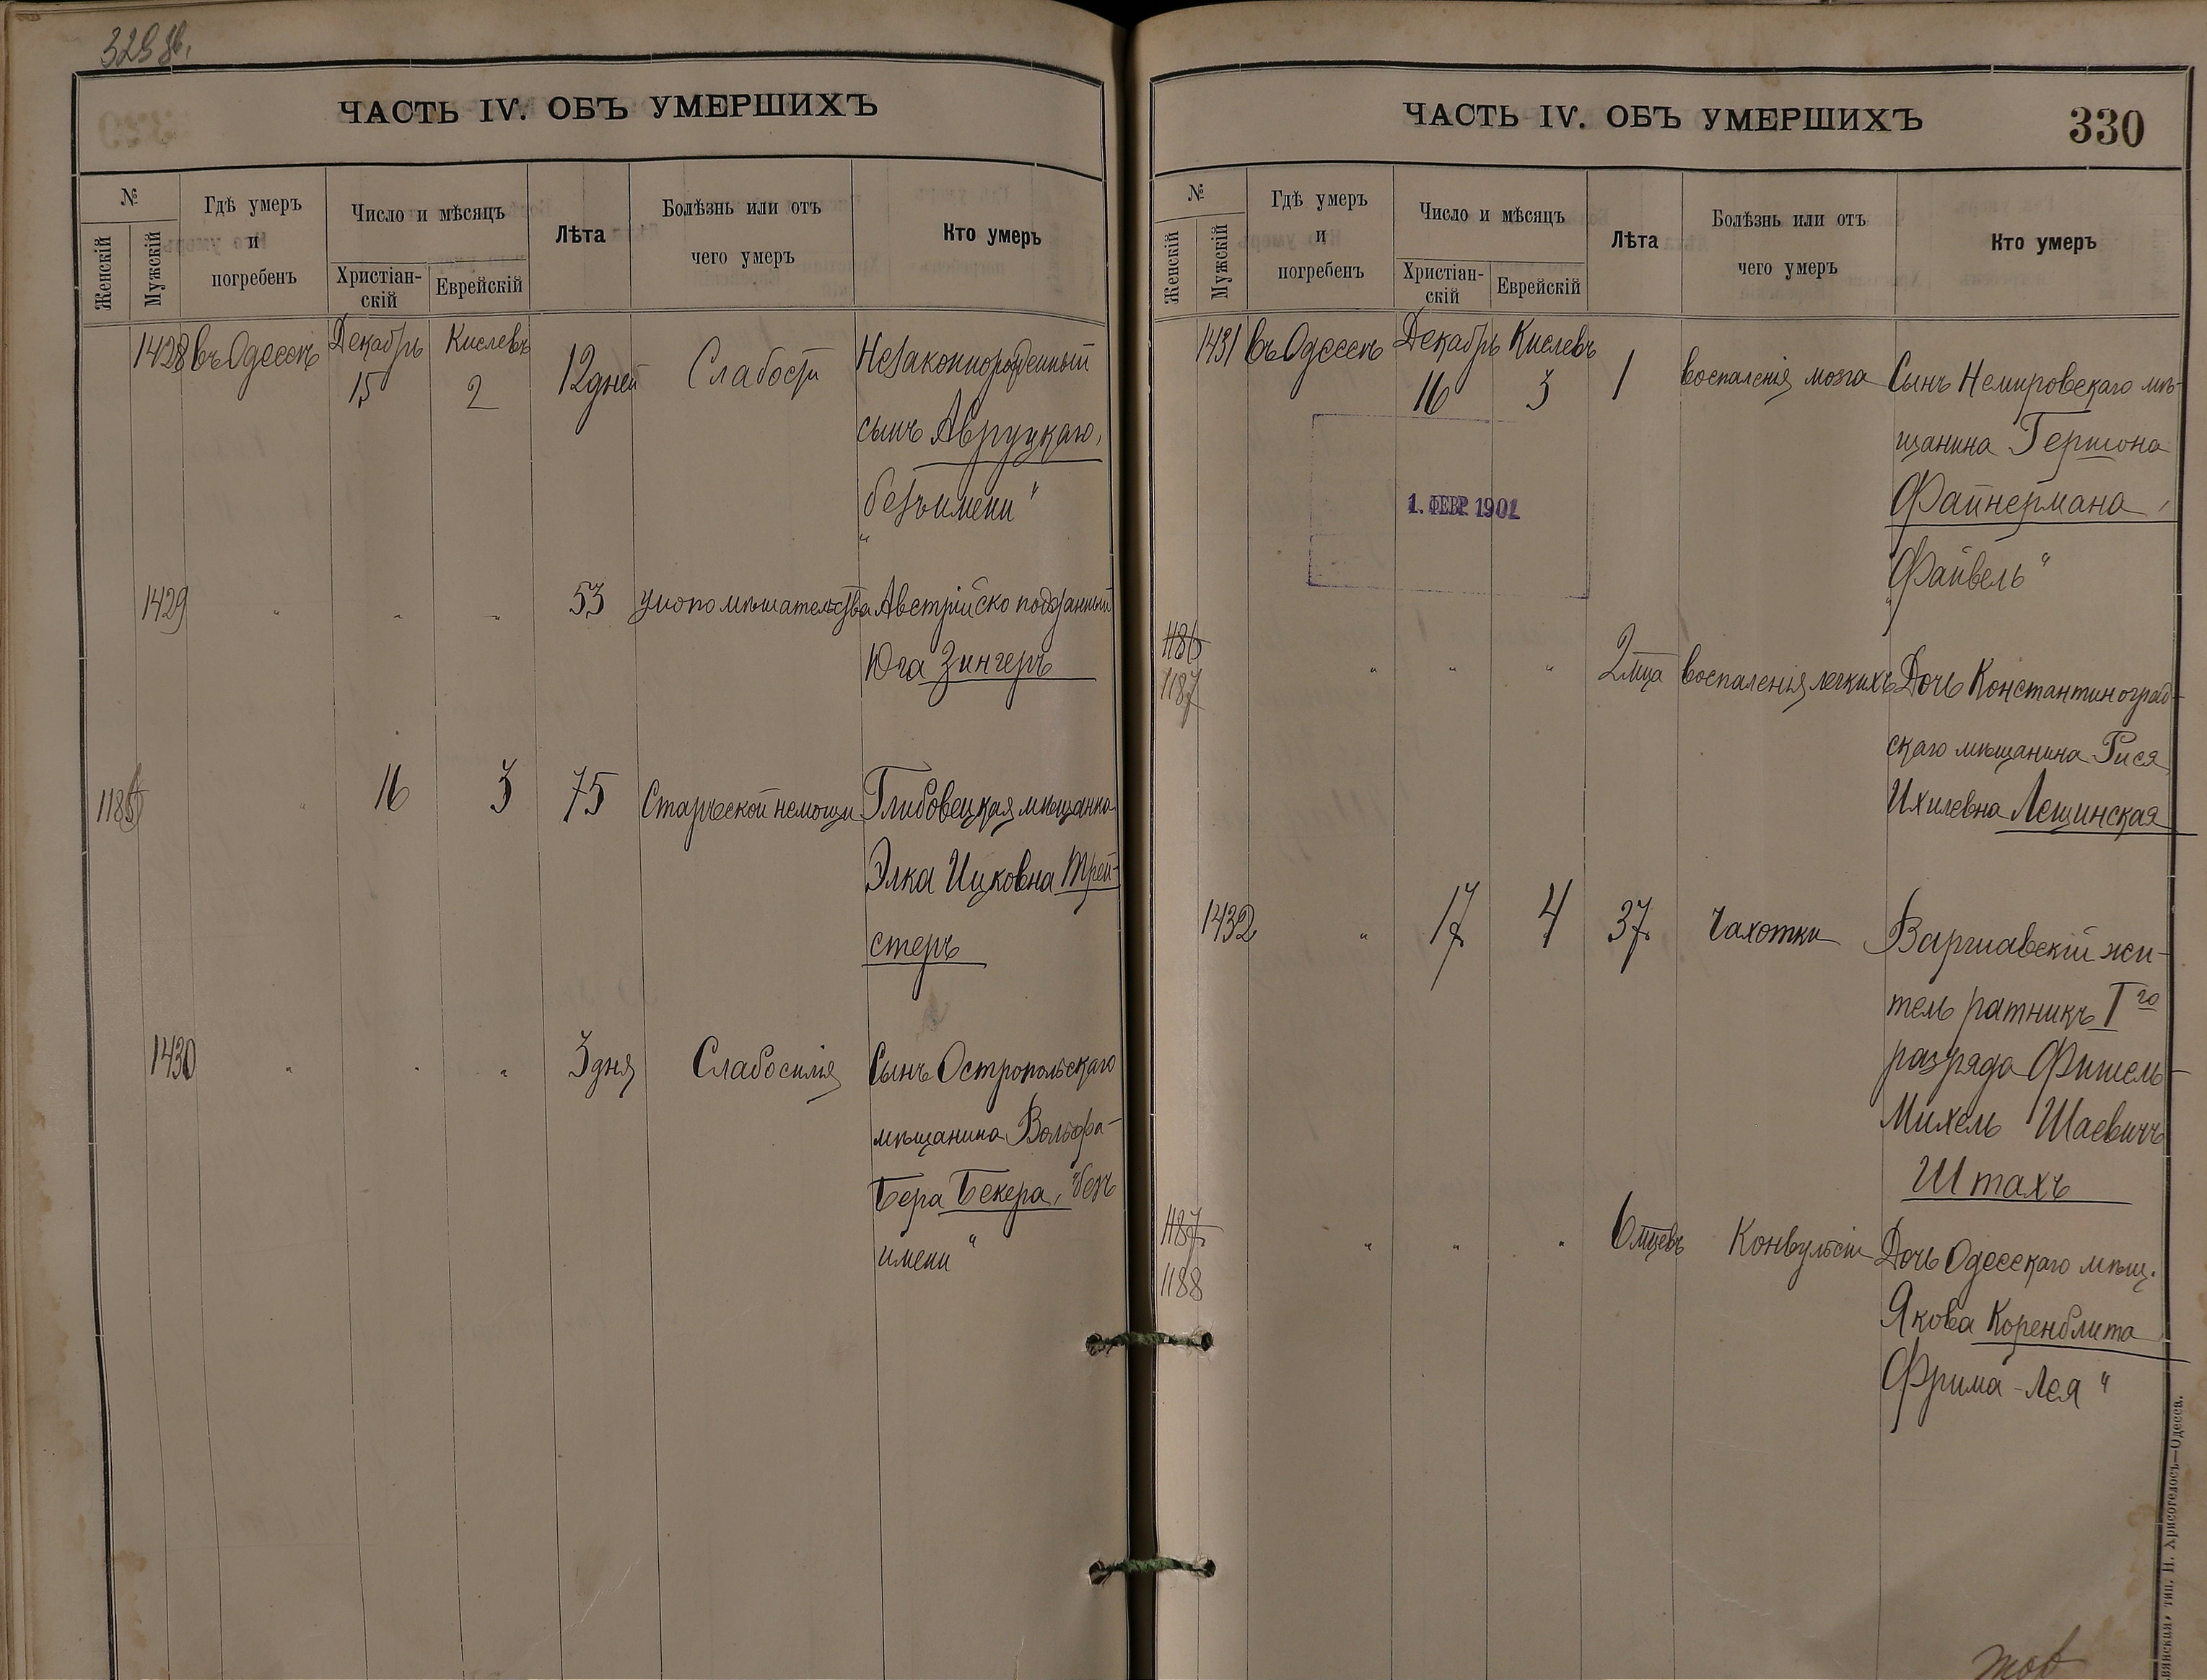 ЧАСТЬ IV. ОБЪ УМЕРШИХЪ
№
Женскій
Мужскій
Гдѣ умеръ
и
погребенъ
Число и мѣсяцъ
Христіан-
скій
Еврейскій
Лѣта
Болѣзнь или отъ
чего умеръ
Кто умеръ
1428 въ Одессѣ Декабрь Кислевъ
15 2 12 дней Слабости Незаконнорожденный
сынъ Авруцкаго,
„безъ имени“
1429 „ „ „ 53 умопомѣшательства Австрійско подданный
Юга Зингеръ
1186 „ 16 3 75 Старческой немощи Глибовецкая мѣщанка
Элка Ицковна Трей-
стеръ
1430 „ „ „ 3 дня Слабосилія Сынъ Остропольскаго
мѣщанина Вольфа-
Бера Бекера, „безъ
имени“
ЧАСТЬ IV. ОБЪ УМЕРШИХЪ
330
№
Женскій
Мужскій
Гдѣ умеръ
и
погребенъ
Число и мѣсяцъ
Христіан-
скій
Еврейскій
Лѣта
Болѣзнь или отъ
чего умеръ
Кто умеръ
1431 въ Одессѣ Декабрь Кислевъ
16 3 1 воспаленія мозга Сынъ Немировскаго мѣ-
щанина Гершона
Файнермана,
„Файвель“
1. ФЕВР. 1902
1186
1187 „ „ „ 2 мца воспаленія легкихъ Дочь Константиноград-
скаго мѣщанина Рися
Ихилевна Лещинская
1432 „ 17 4 37 Чахотки Варшавскій жи-
тель ратникъ I го
разряда Фишель-
Михель Шаевичъ
Штахъ
1187
1188 „ „ „ 6 мцевъ Конвульсіи Дочь Одесскаго мѣщ.
Якова Коренблита
Фрима-Лея“
тип. И. Хрисогелосъ—Одесса.